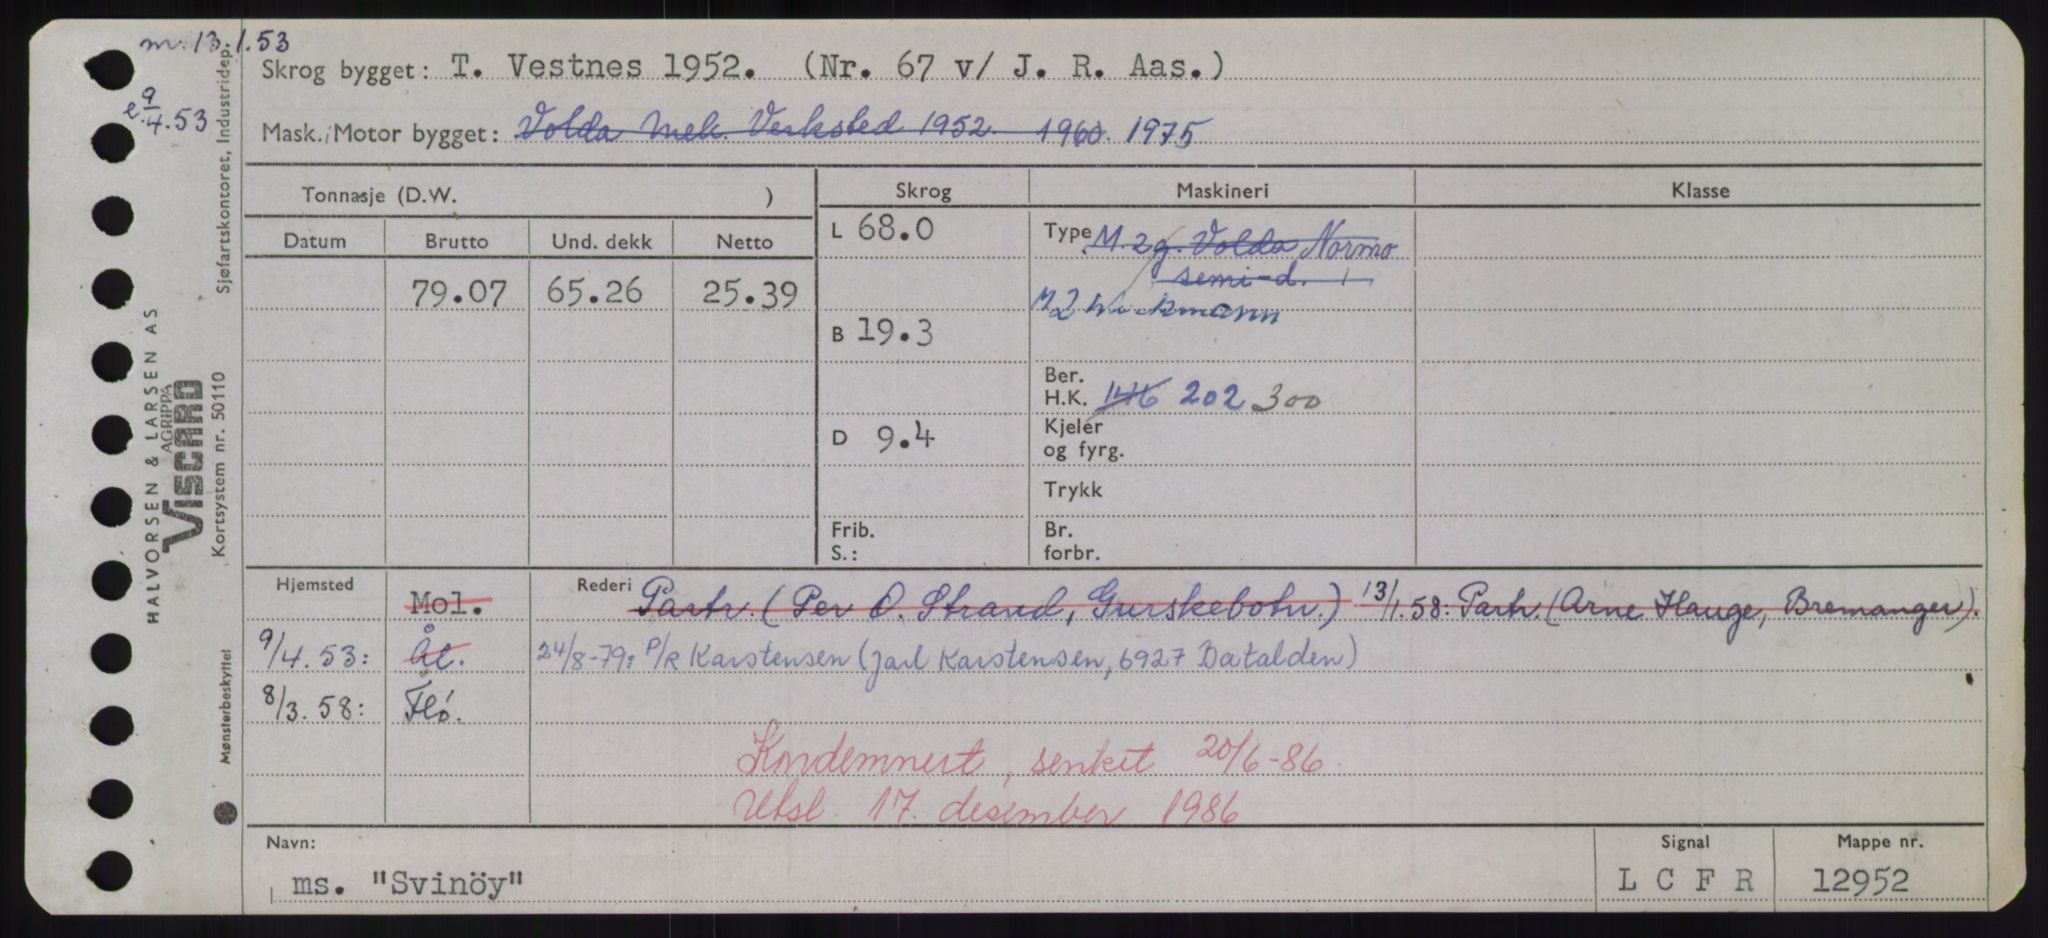 m. 13.1.53
Skrog bygget: T. Vestnes 1952. (Nr. 67 v/ J. R. Aas.)
9/4.53
Mask./Motor bygget: Volda Mek. Verksted 1952 1960. 1975
Tonnasje (D.W. )
Skrog
Maskineri
Klasse
Datum
Brutto
Und. dekk
Netto
79.07
65.26
25.39
L 68.0
B 19.3
D 9.4
Frib.
S.:
Type M. 2 g. Volda Normo
semi-d.
M 2 Wickmann
Ber.
H.K. 146 202 300
Kjeler
og fyrg.
Trykk
Br.
forbr.
Hjemsted
Mol.
Rederi Partr. (Per O. Strand, Gurskebotn.) 13/1.58: Partr. (Arne Hauge, Bremanger).
9/4.53: Ål. 24/8-79: P/R Karstensen (Jarl Karstensen, 6927 Batalden)
8/3.58: Flö.
Kondemnert, senket 20/6-86.
Utsl. 17. desember 1986
Navn:
ms. "Svinöy"
Signal
L C F R
Mappe nr.
12952
HALVORSEN & LARSEN AS
AGRIPPA
VISCARD
Kortsystem nr. 50110
Sjøfartskontoret, Industridep.
Mønsterbeskyttet